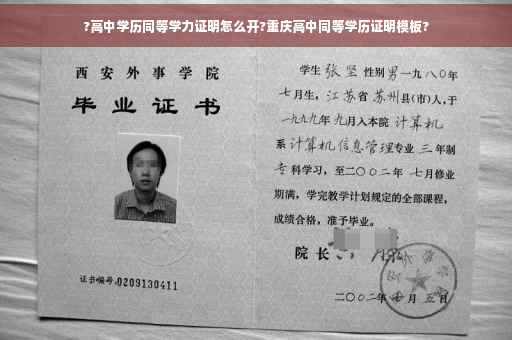 ?高中学历同等学力证明怎么开?重庆高中同等学历证明模板?
西安外事学院
毕业证书
证书编号:0209130411
学生 张坚 性别 男 一九八〇年
七月生, 江苏省 苏州县(市)人,于
一九九九年 九月入本院 计算机
系 计算机信息管理专业 三年制
专科学习, 至二〇〇二年 七月修业
期满, 学完教学计划规定的全部课程,
成绩合格, 准予毕业。
院长
二〇〇二年 月 五日